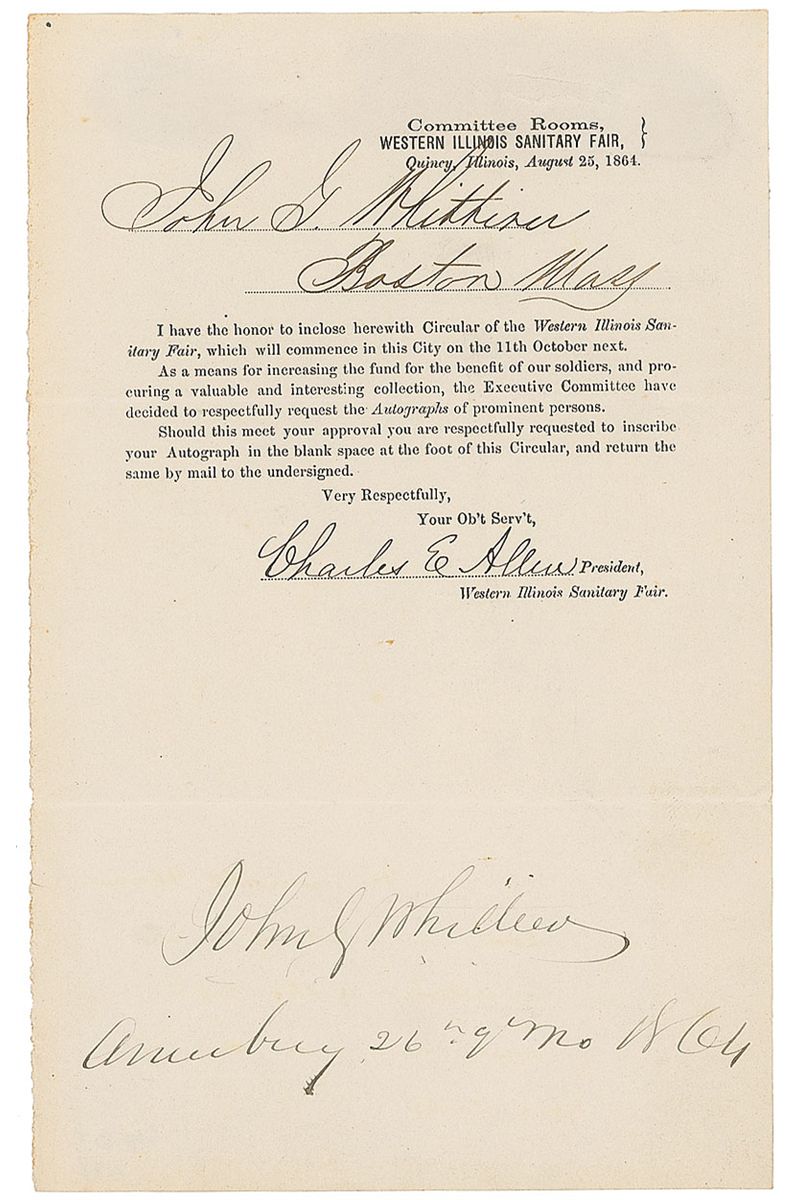 Committee Rooms,
WESTERN ILLINOIS SANITARY FAIR, }
Quincy, Illinois, August 25, 1864.
John G. Whittier
Boston Mass
I have the honor to inclose herewith Circular of the Western Illinois San-
itary Fair, which will commence in this City on the 11th October next.
As a means for increasing the fund for the benefit of our soldiers, and pro-
curing a valuable and interesting collection, the Executive Committee have
decided to respectfully request the Autographs of prominent persons.
Should this meet your approval you are respectfully requested to inscribe
your Autograph in the blank space at the foot of this Circular, and return the
same by mail to the undersigned.
Very Respectfully,
Your Ob't Serv't,
Charles E Allen President,
Western Illinois Sanitary Fair.
John G Whittier
Amesbury 26th 9th Mo 1864